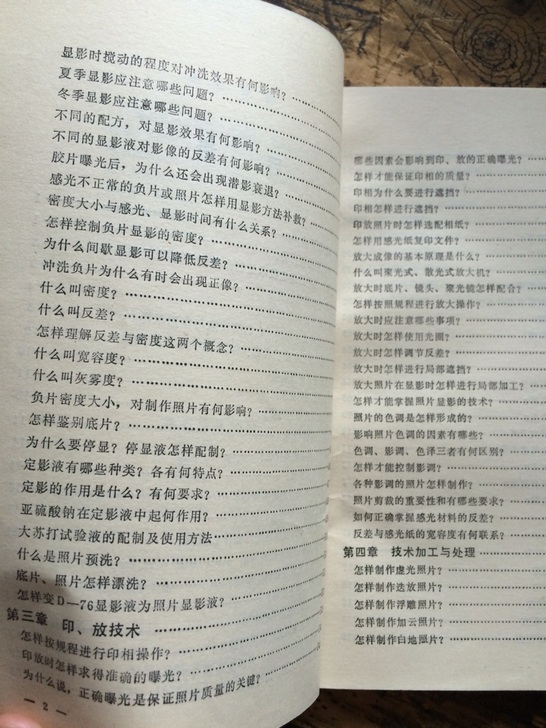 显影时搅动的程度对冲洗效果有何影响？
夏季显影应注意哪些问题？
冬季显影应注意哪些问题？
不同的配方，对显影效果有何影响？
不同的显影液对影像的反差有何影响？
胶片曝光后，为什么还会出现潜影衰退？
感光不正常的负片或照片怎样用显影方法补救？
密度大小与感光、显影时间有什么关系？
怎样控制负片显影的密度？
为什么间歇显影可以降低反差？
冲洗负片为什么有时会出现正像？
什么叫密度？
什么叫反差？
怎样理解反差与密度这两个概念？
什么叫宽容度？
什么叫灰雾度？
负片密度大小，对制作照片有何影响？
怎样鉴别底片？
为什么要停显？停显液怎样配制？
定影液有哪些种类？各有何特点？
定影的作用是什么？有何要求？
亚硫酸钠在定影液中起何作用？
大苏打试验液的配制及使用方法
什么是照片预洗？
底片、照片怎样漂洗？
怎样变D—76显影液为照片显影液？
第三章 印、放技术
怎样按规程进行印相操作？
印放时怎样求得准确的曝光？
为什么说，正确曝光是保证照片质量的关键？
— 2 —
哪些因素会影响到印、放的正确曝光？
怎样才能保证印相的质量？
印相为什么要进行遮挡？
印相怎样进行遮挡？
印放照片时怎样选配相纸？
怎样用感光纸复印文件？
放大成像的基本原理是什么？
什么叫聚光式、散光式放大机？
放大时底片、镜头、聚光镜怎样配合？
怎样按照规程进行放大操作？
放大时应注意哪些事项？
放大时怎样使用光圈？
放大时怎样调节反差？
放大时怎样进行局部遮挡？
放大照片在显影时怎样进行局部加工？
怎样才能掌握照片显影的技术？
照片的色调是怎样形成的？
影响照片色调的因素有哪些？
色调、影调、色泽三者有何区别？
怎样才能控制影调？
各种影调的照片怎样制作？
照片剪裁的重要性和有哪些要求？
如何正确掌握感光材料的反差？
反差与感光纸的宽容度有何联系？
第四章 技术加工与处理
怎样制作虚光照片？
怎样制作迭放照片？
怎样制作浮雕照片？
怎样制作加云照片？
怎样制作白地照片？